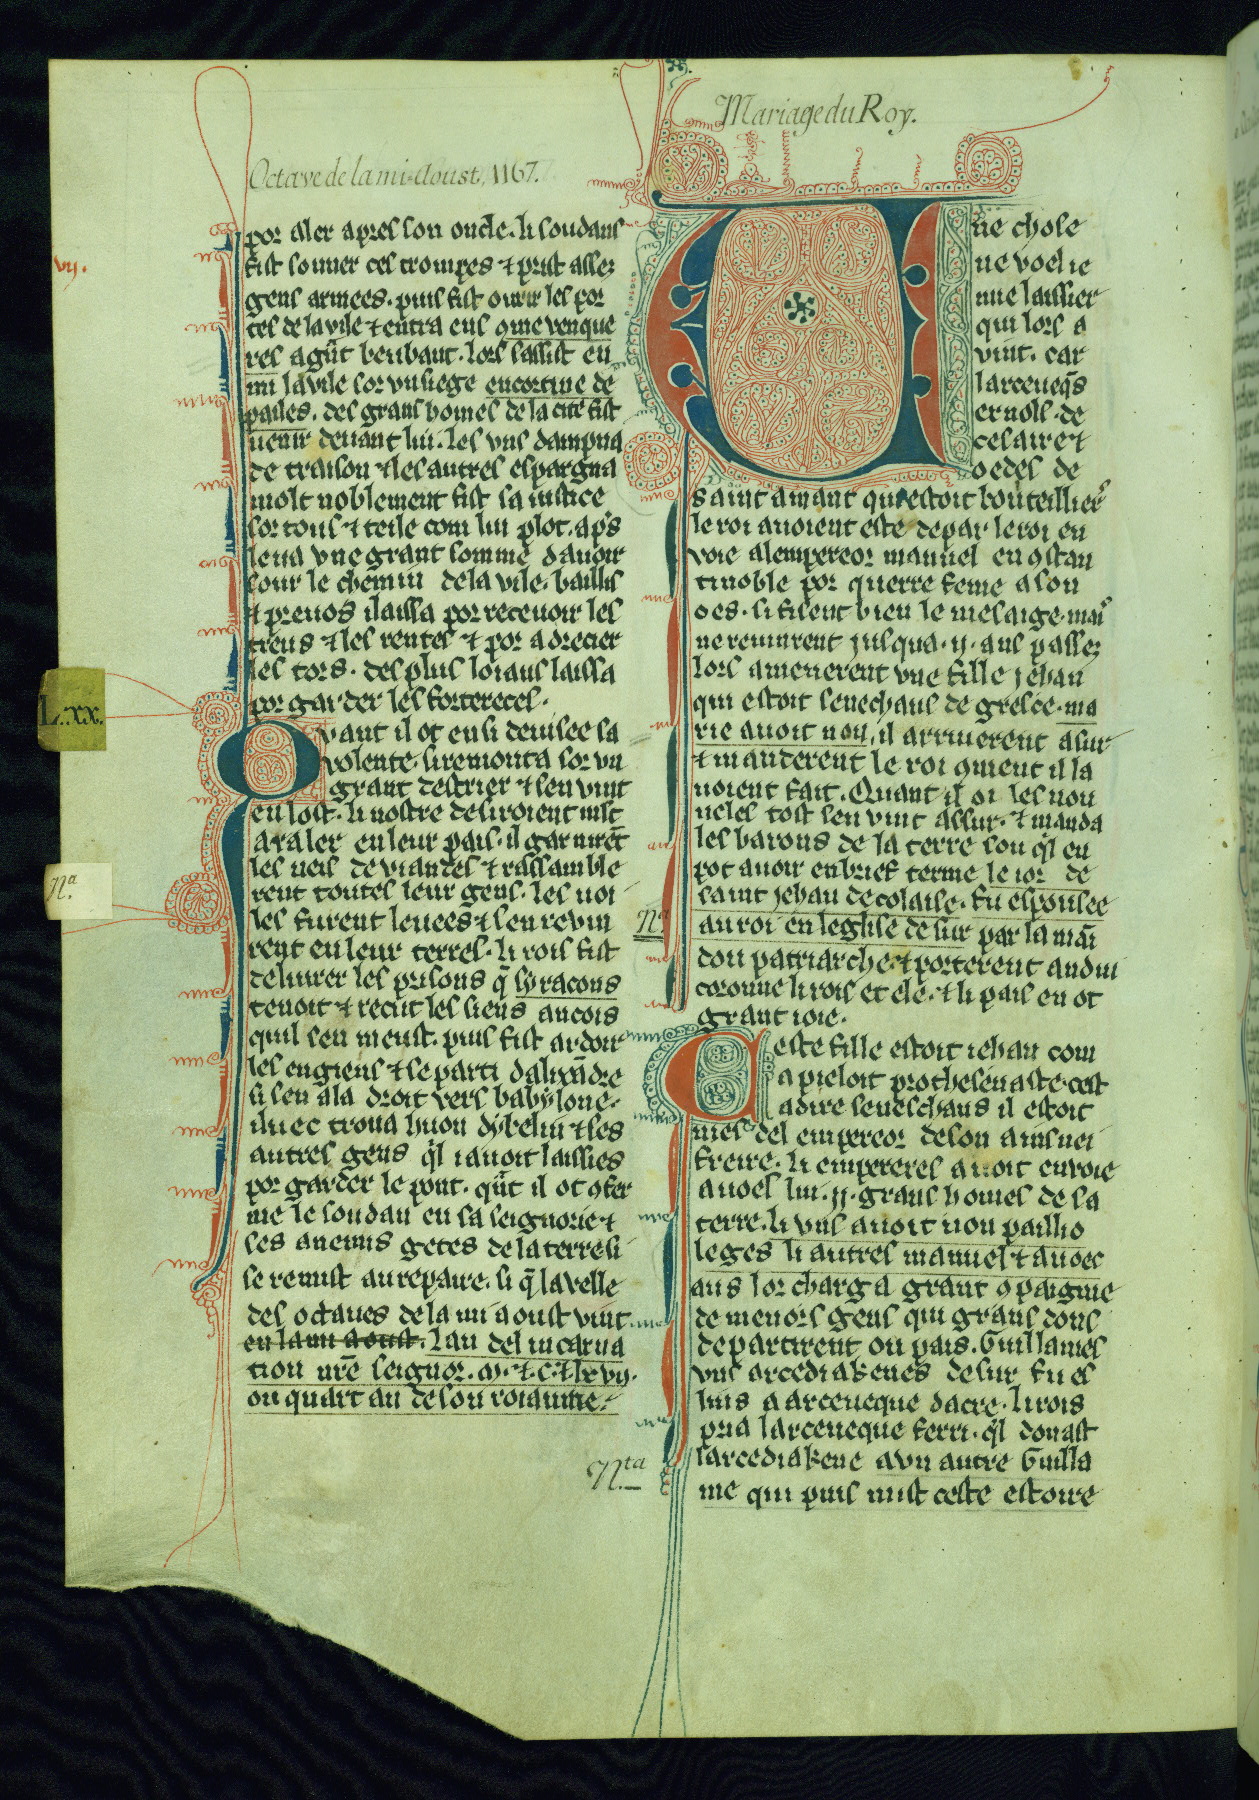 Mariage du Roy.
Octave de la mi-Aoust, 1167.
vij.
por aler apres son oncle. li soudans
fist sonner ces trompes ⁊ prist assez
gens armees. puis fist ourir les por
tes de la vile ⁊ entra ens ꝯme venque
res a gñt beubant. lors sassist en
mi la vile sor vn siege encortine de
pailes. des grans homes de la cite fist
uenir deuant lui. les vns dampna
de traison ⁊ les autres espargna
molt noblement fist sa iustice
sor tous ⁊ teile com lui plot. ap̃s
leua vne grant somme dauoir
sour le chemin de la vile. baillis
⁊ preuos ilaissa por receuoir les
treus ⁊ les rentes ⁊ por adrecier
les tors. des plus loiaus laissa
por garder les fortereces.
L.xx.
Quant il ot ensi deuisee sa
volente. si remonta sor vn
grant destrier ⁊ sen vint
en lost. li nostre desiroient mlt̃
a raler en leur pais. il garnirẽt
Nᵃ.
les neis de viandes ⁊ rassamble
rent toutes leur gens. les uoi
les furent leuees ⁊ sen revin
rent en leur terres. li rois fist
deliurer les prisons q̃ syracons
tenoit ⁊ recut les siens ancois
quil sen meust. puis fist ardoir
les engiens ⁊ se parti dalixãdre
si sen ala droit vers babylone.
iluec troua huon dybelin ⁊ les
autres gens ql̃ i auoit laissies
por garder le pont. qñt il ot ꝯfer
me le soudan en sa seignorie ⁊
ses anemis getes de la terre si
se remist au repaire. si q̃ la velle
des octaues de la mi aoust vint.
en la mi aoust. Lan del incarna
tion nr̃e seignor. m. ⁊. c. ⁊ lxvij.
ou quart an de son roiaume.
Une chose
ne voel ie
mie laissier
qui lors a
vint. car
larceueq̃s
ernols de
cesaire ⁊
oedes de
saint amant qui estoit bouteilliers
le roi auoient este de par le roi en
voie a lempereor manuel en ꝯstan
tinoble por querre feme a son
oes. si fisent bien le mesaige. mais
ne reuinrent jusqua .ij. ans passez
lors amenerent vne fille jehan
qui estoit senechaus de gresce. ma
rie auoit non. il arriuerent a sur
⁊ manderent le roi ꝯment il la
uoient fait. Quant il oi les nou
ueles tost sen vint a ssur. ⁊ manda
les barons de la terre son ql̃ en
pot auoir en brief terme le ior de
saint jehan decolaise. fu espousee
Nᵃ.
au roi en leglise de sur par la mai
dou patriarche. ⁊ porterent andui
coronne li rois et ele. ⁊ li pais en ot
grant ioie.
Ceste fille estoit iehan com
apieloit prothesenaste. cest
a dire seneschaus il estoit
nies del empereor de son ainsnei
freire. li empereres auoit envoie
auoel lui .ij. grans homes de sa
terre. li vns auoit non pailio
leges li autres manuel ⁊ auoec
aus lor charga grant ꝯpaignie
de menors gens qui grans dons
departirent ou pais. Guillames
vns arcediakenes de sur fu es
luis a arceueque dacre. li rois
pria larceueque ferri. ql̃ donast
larcediakene a vn autre Guilla
Nᵗᵃ.
me qui puis mist ceste estoire